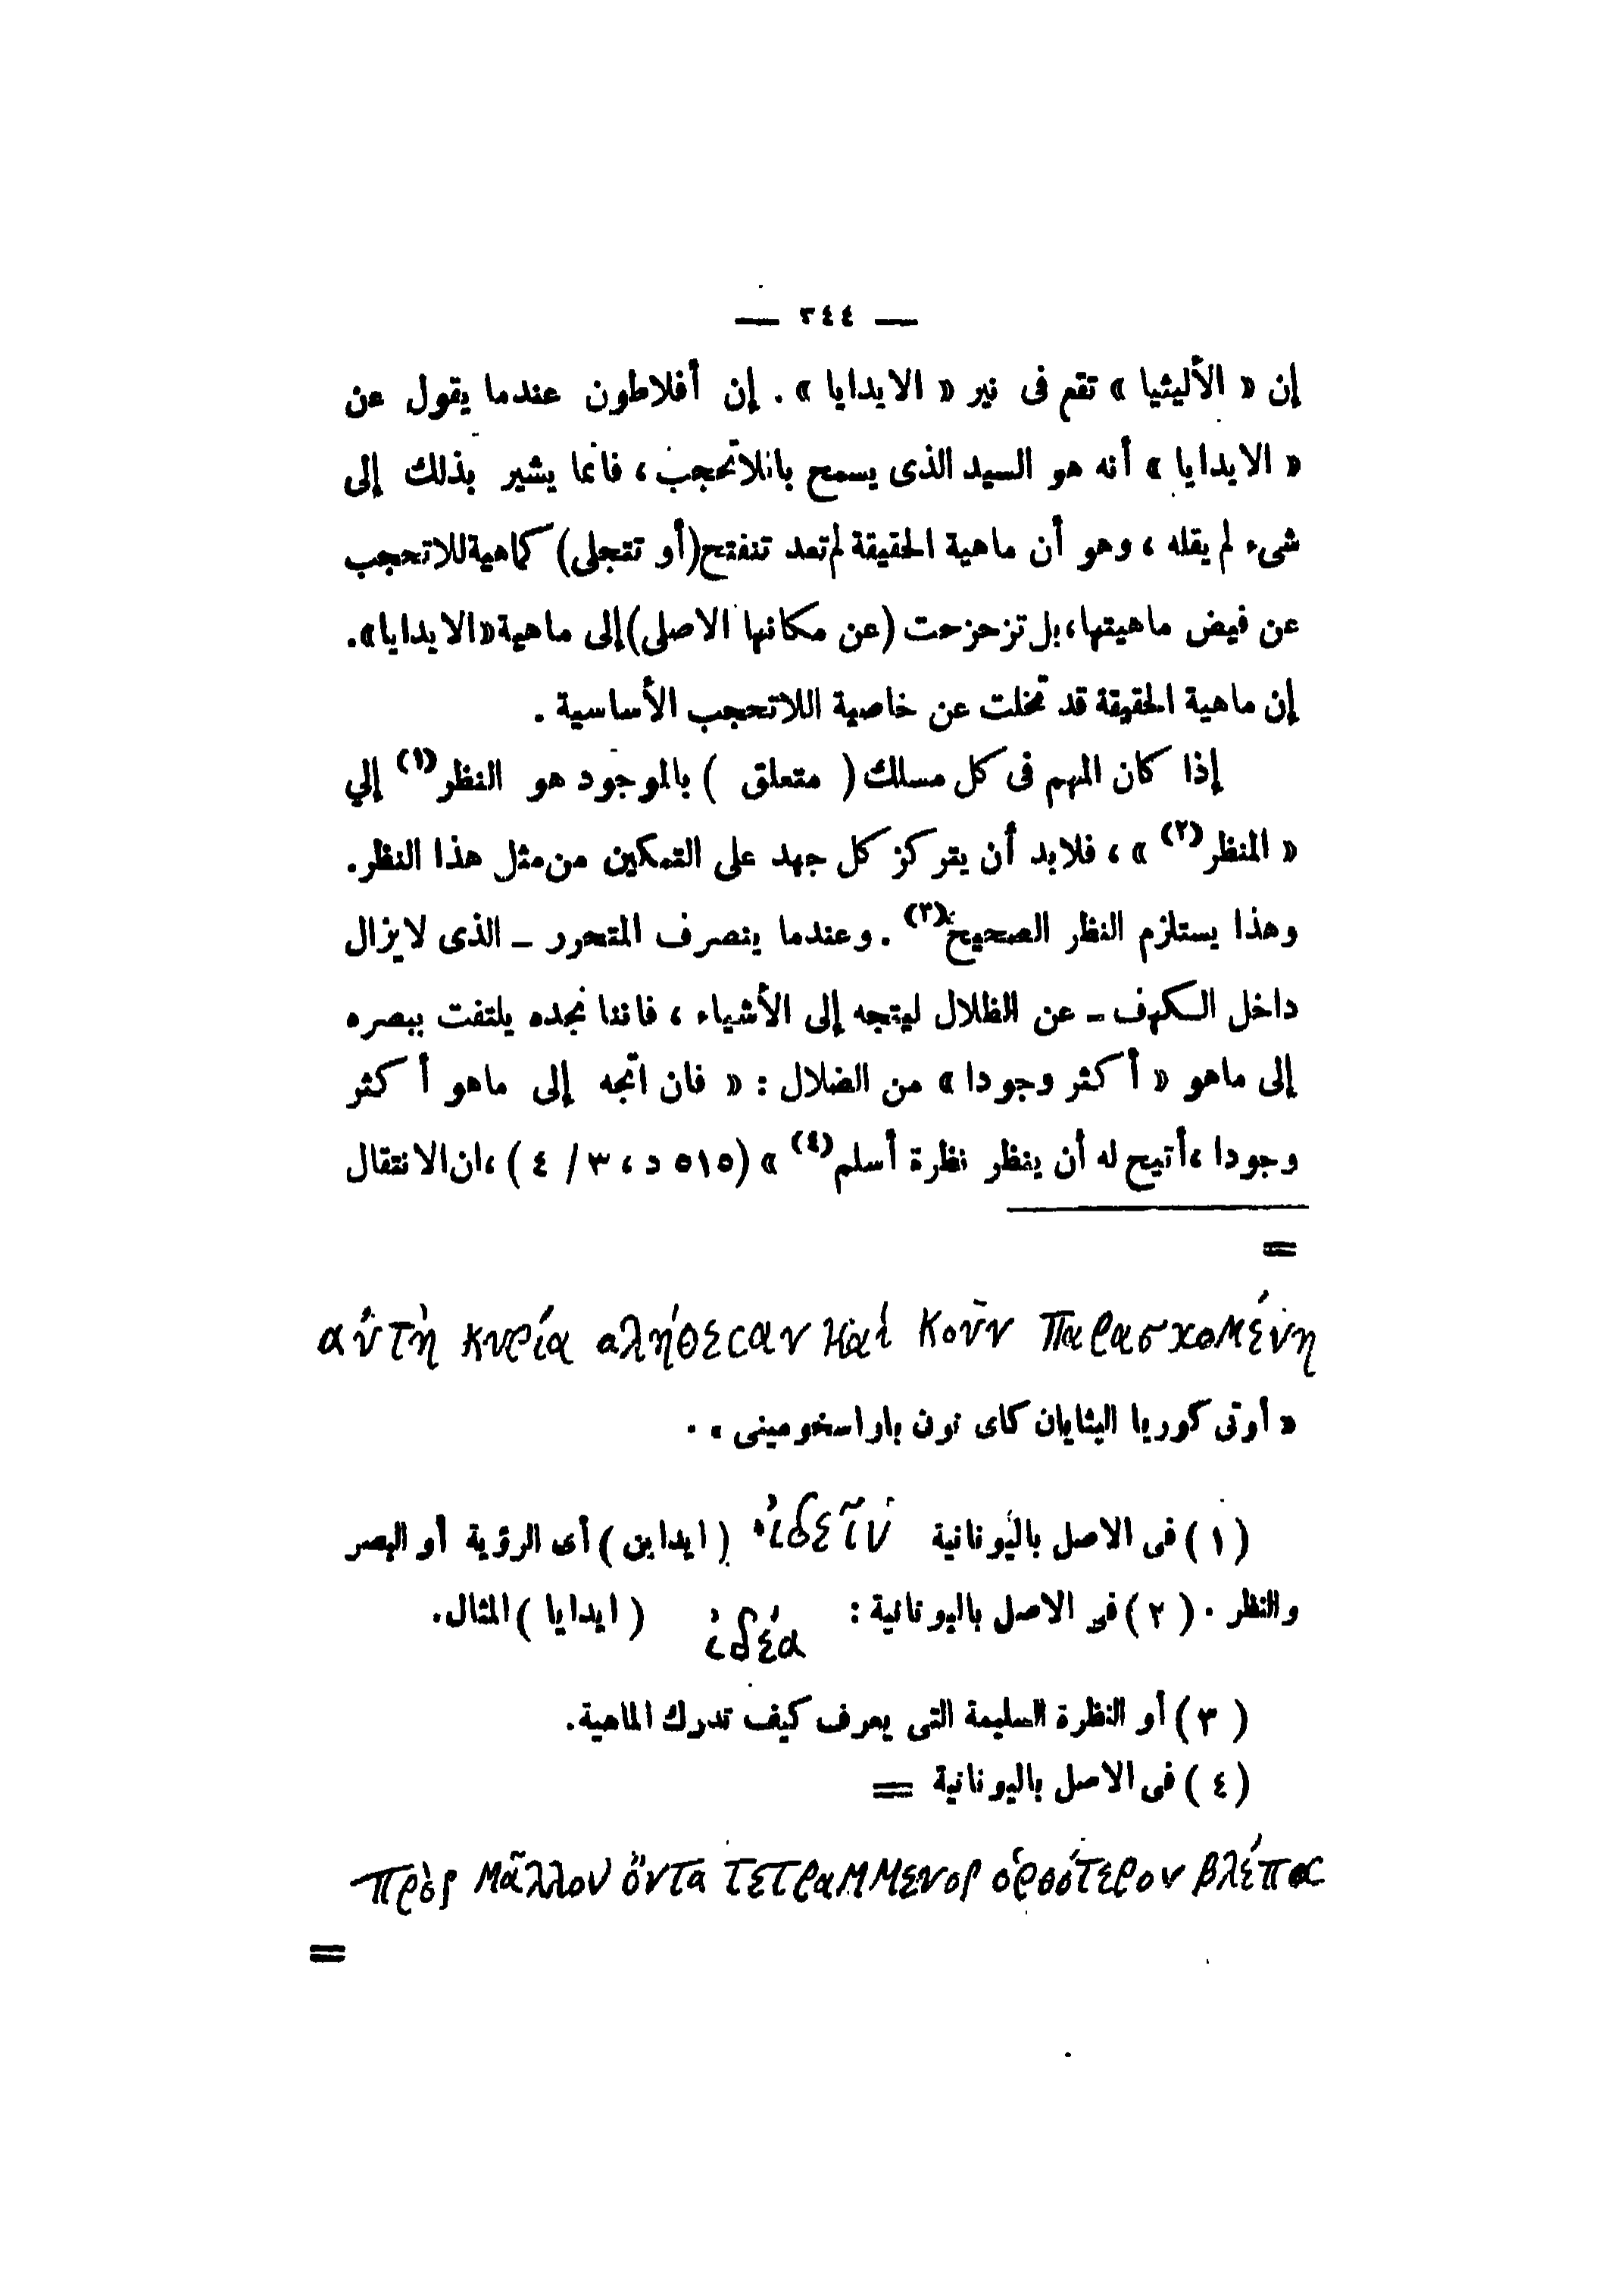 — ٣٤٤ —
إن « الأليثيا » تقع فى نير « الايدايا » . إن أفلاطون عندما يقول عن
« الايدايا » أنه هو السيد الذى يسمح باللاتحجب ، فانما يشير بذلك إلى
شىء لم يقله ، وهو أن ماهية الحقيقة لم تعد تنفتح (أو تتجلى) كماهية للاتحجب
عن فيض ماهيتها، بل تزحزحت (عن مكانها الاصلى) إلى ماهية «الايدايا».
إن ماهية الحقيقة قد تخلت عن خاصية اللاتحجب الأساسية .
إذا كان المهم فى كل مسلك ( متعلق ) بالموجود هو النظر(١) إلي
« المنظر(٢) » ، فلابد أن يتركز كل جهد على التمكين من مثل هذا النظر.
وهذا يستلزم النظر الصحيح(٣) . وعندما ينصرف المتحرر ـ الذى لايزال
داخل الكهف ـ عن الظلال ليتجه إلى الأشياء ، فاننا نجده يلتفت ببصره
إلى ماهو « أكثر وجودا » من الضلال : « فان اتجه إلى ماهو أكثر
وجودا ، أتيح له أن ينظر نظرة أسلم(٤) » (٥١٥ د ، ٣ / ٤ ) ، ان الانتقال
=
αὐτὴ κυρία αλήθεςαν καὶ κοῦν παρασχομένη
« أوتى كوريا اليثايان كاى نون باراسخومينى » .
( ١ ) فى الاصل باليونانية ἰδεῖν ( ايداين ) أى الرؤية أو البصر
والنظر . ( ٢ ) فى الاصل باليونانية : ἰδέα ( ايدايا ) المثال.
( ٣ ) أو النظرة السليمة التى يعرف كيف تدرك الماهية.
( ٤ ) فى الاصل باليونانية =
πρὸς μᾶλλον ὄντα τετραμμενος ὀρθότερον βλέποι
=